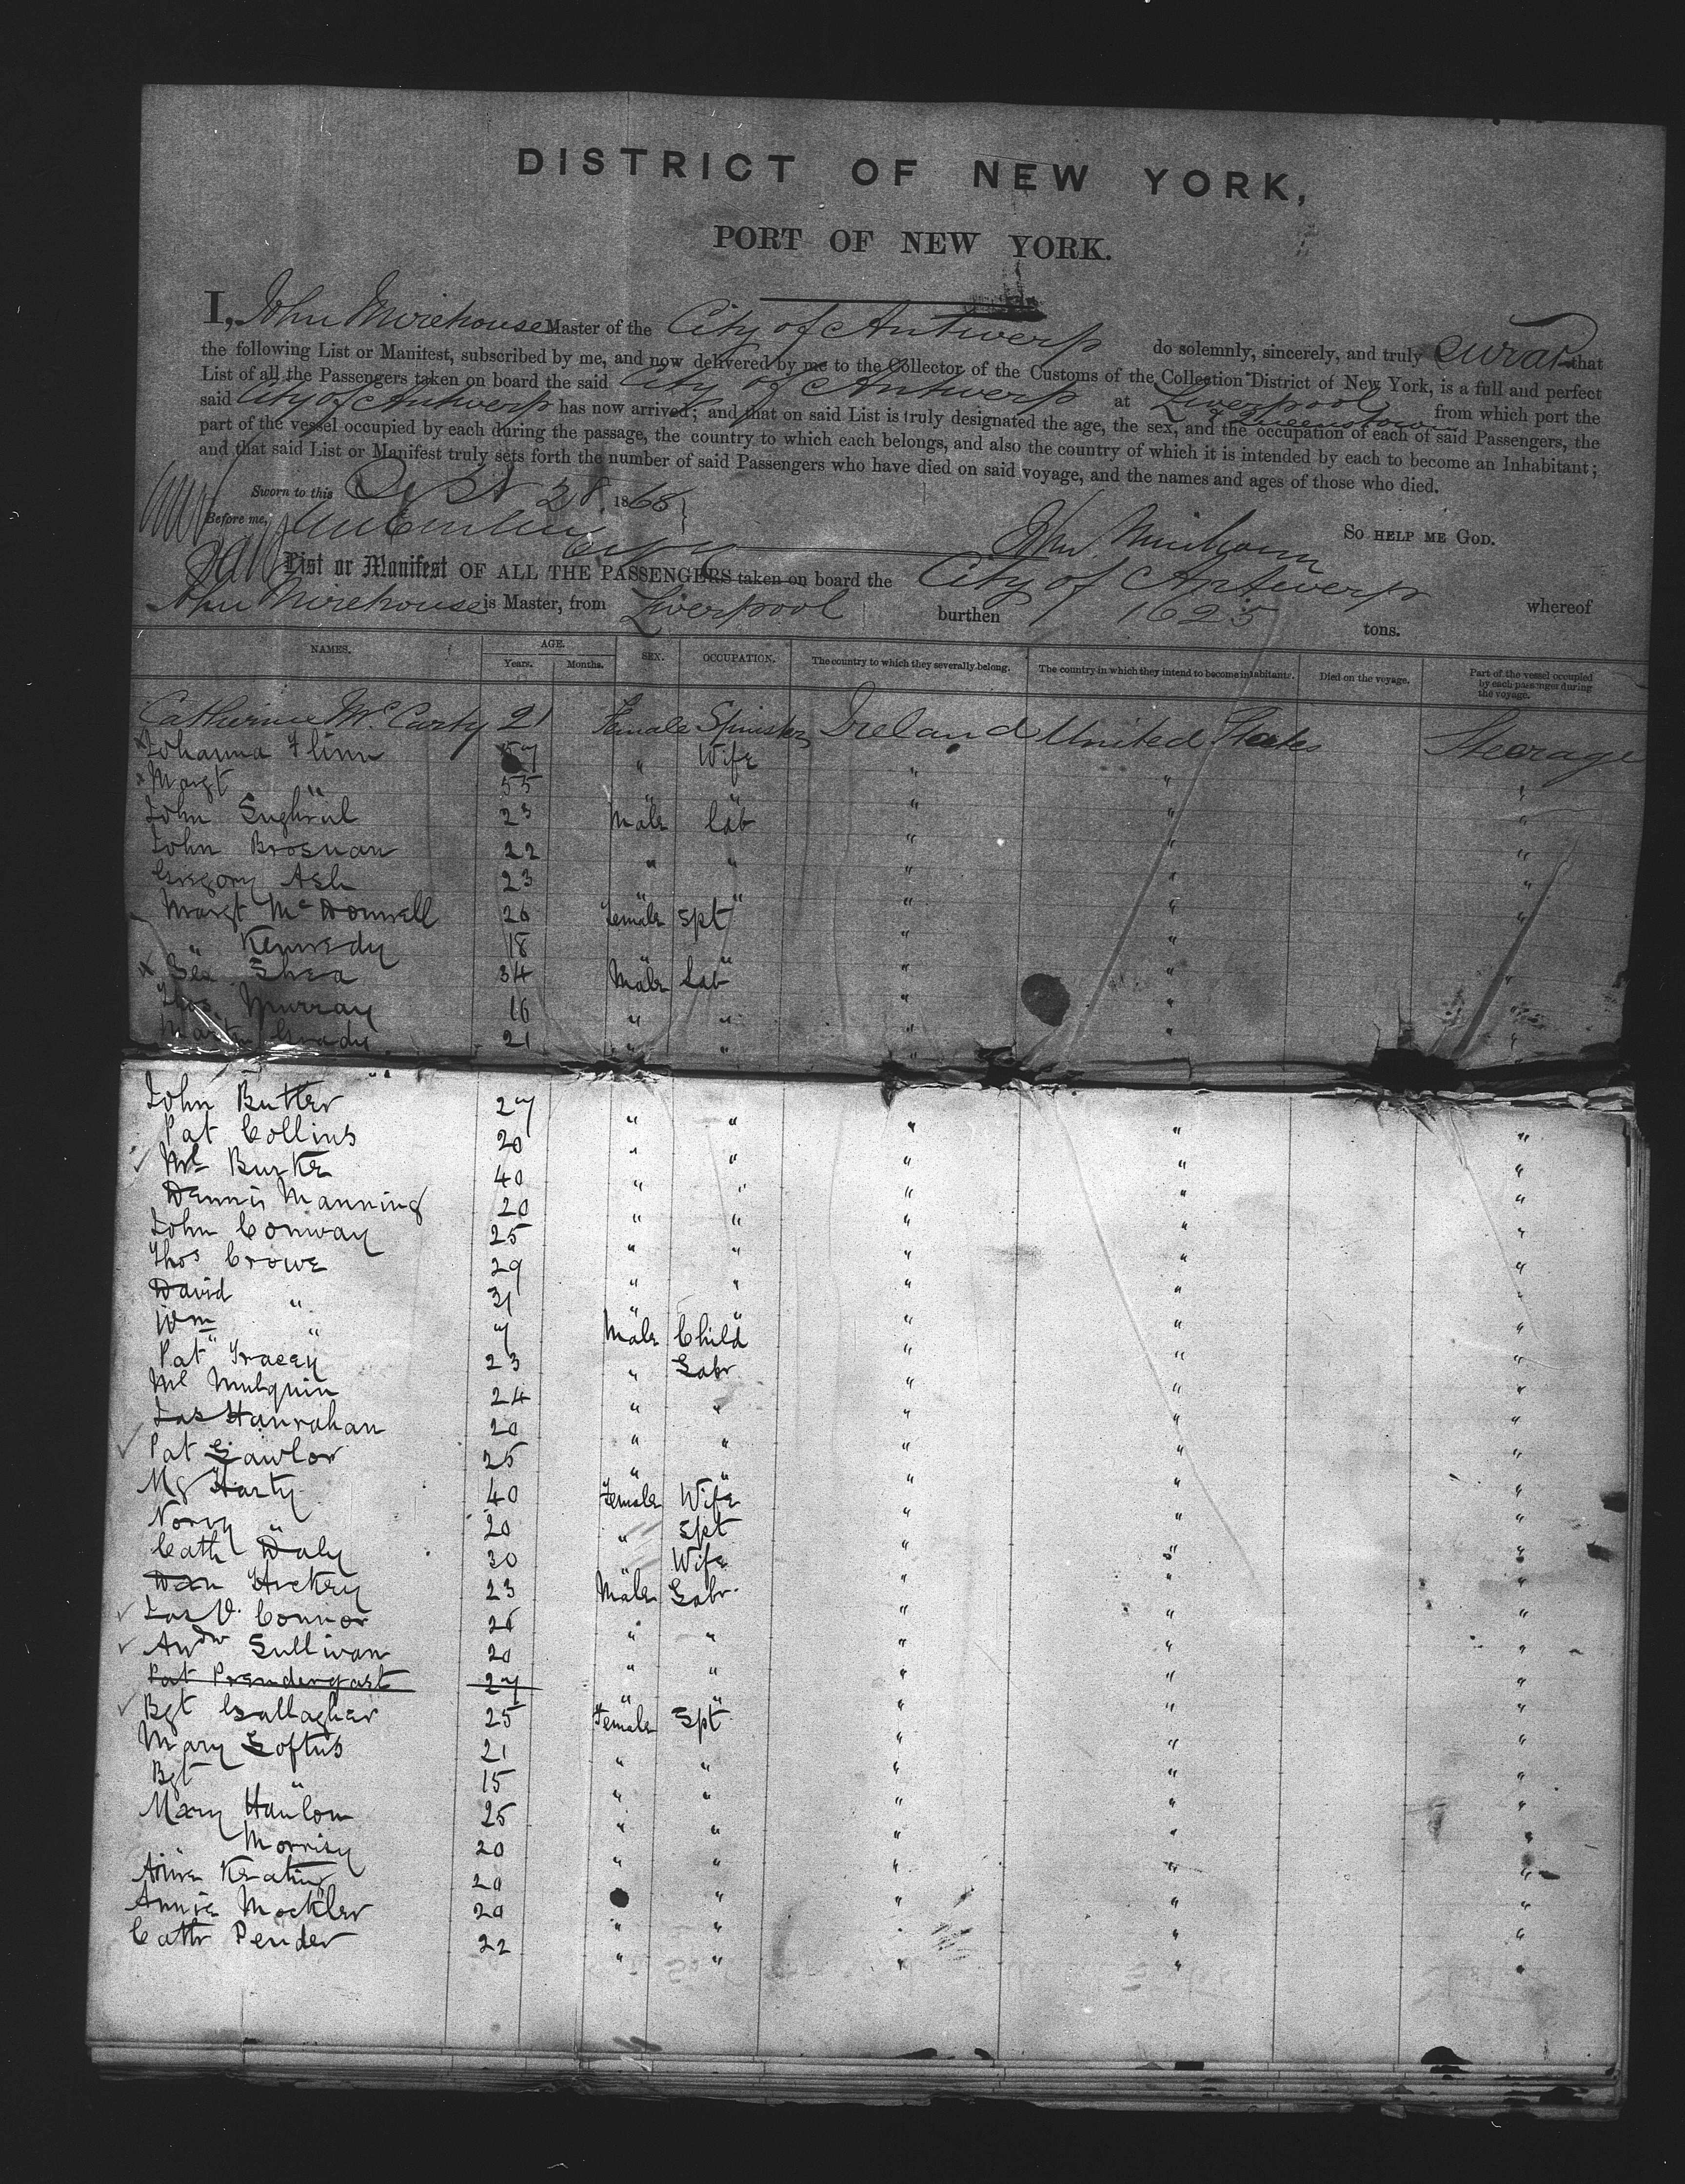 DISTRICT OF NEW YORK,
PORT OF NEW YORK.
I, John Mirehouse Master of the City of Antwerp do solemnly, sincerely, and truly swear that
the following List or Manifest, subscribed by me, and now delivered by me to the Collector of the Customs of the Collection District of New York, is a full and perfect
List of all the Passengers taken on board the said City of Antwerp at Liverpool & Queenstown from which port the
said City of Antwerp has now arrived; and that on said List is truly designated the age, the sex, and the occupation of each of said Passengers, the
part of the vessel occupied by each during the passage, the country to which each belongs, and also the country of which it is intended by each to become an Inhabitant;
and that said List or Manifest truly sets forth the number of said Passengers who have died on said voyage, and the names and ages of those who died.
Sworn to this Sept 28 1868
Before me,
So help me God.
List or Manifest OF ALL THE PASSENGERS taken on board the City of Antwerp whereof
John Mirehouse is Master, from Liverpool burthen 1625 tons.
NAMES. AGE. Years. Months. SEX. OCCUPATION. The country to which they severally belong. The country in which they intend to become inhabitants. Died on the voyage. Part of the vessel occupied by each passenger during the voyage.
Catherine McCarty 21 Female Spinster Ireland United States Steerage
Johanna Flinn 57 " Wife " " "
Margt " 55 " " " " "
John 23 Male Lab " " "
John Brosnan 22 " " " " "
Gregory Ash 23 " " " " "
Margt McDonnell 26 Female Spt " " "
" Kennedy 18 " " " " "
Shea 34 Male Lab " " "
Thos. Murray 16 " " " " "
Martin Grady 21 " " " " "
John Butler 27 " " " " "
Pat Collins 20 " " " " "
Ml Burke 40 " " " " "
Dennis Manning 20 " " " " "
John Conway 25 " " " " "
Thos Crowe 29 " " " " "
David " 31 " " " " "
Wm " 7 Male Child " " "
Pat Tracey 23 " Labr " " "
Ml Mulquin 24 " " " " "
Jas Hanrahan 20 " " " " "
Pat Lawlor 25 " " " " "
Mg Harty 40 Female Wife " " "
Nory " 20 " Spt " " "
Cath Daly 30 " Wife " " "
Dan Hickey 23 Male Labr " " "
Jas O. Connor 26 " " " " "
Andw Sullivan 20 " " " " "
Pat Prendergast 27 " " " " "
Bgt Gallagher 25 Female Spt " " "
Mary Loftus 21 " " " " "
Bgt " 15 " " " " "
Mary Hanlon 25 " " " " "
" Morrisy 20 " " " " "
Keating 20 " " " "
Annie Mockler 20 " " " " "
Cath Pender 22 " " " " "